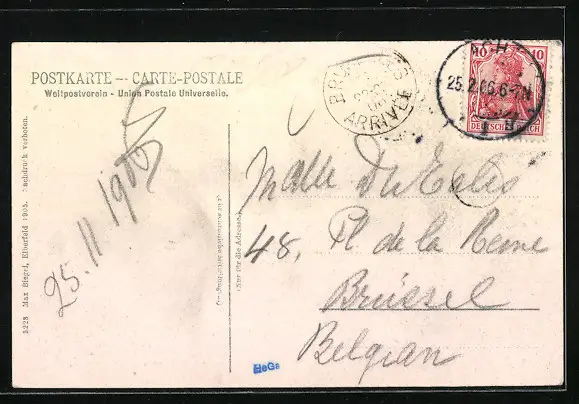 POSTKARTE -- CARTE-POSTALE
Weltpostverein - Union Postale Universelle.
10 10
DEUTSCHES REICH
25.2.06.6-7N
ARRIVÉE
25.11.1905
Melle
48, Pl de la Reine
Brüssel
Belgian
(Nur für die Adresse)
3228 Max Biegel, Elberfeld 1905. Nachdruck verboten.
HeGe